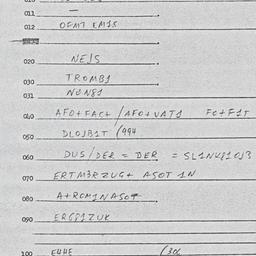 011 —
012 OFMT EM1S
020 NE1S
030 TROMB1
031 NUN81
040 AFO+FACT / AFO+VAT1 FO+F1T
050 DLOJB1T (994
060 DUS/DER = DER = SL1NK810J?
070 ERTM3RZUG+ ASOT 1N
080 A+ROM1NASOT
090 ERG81ZUK
100